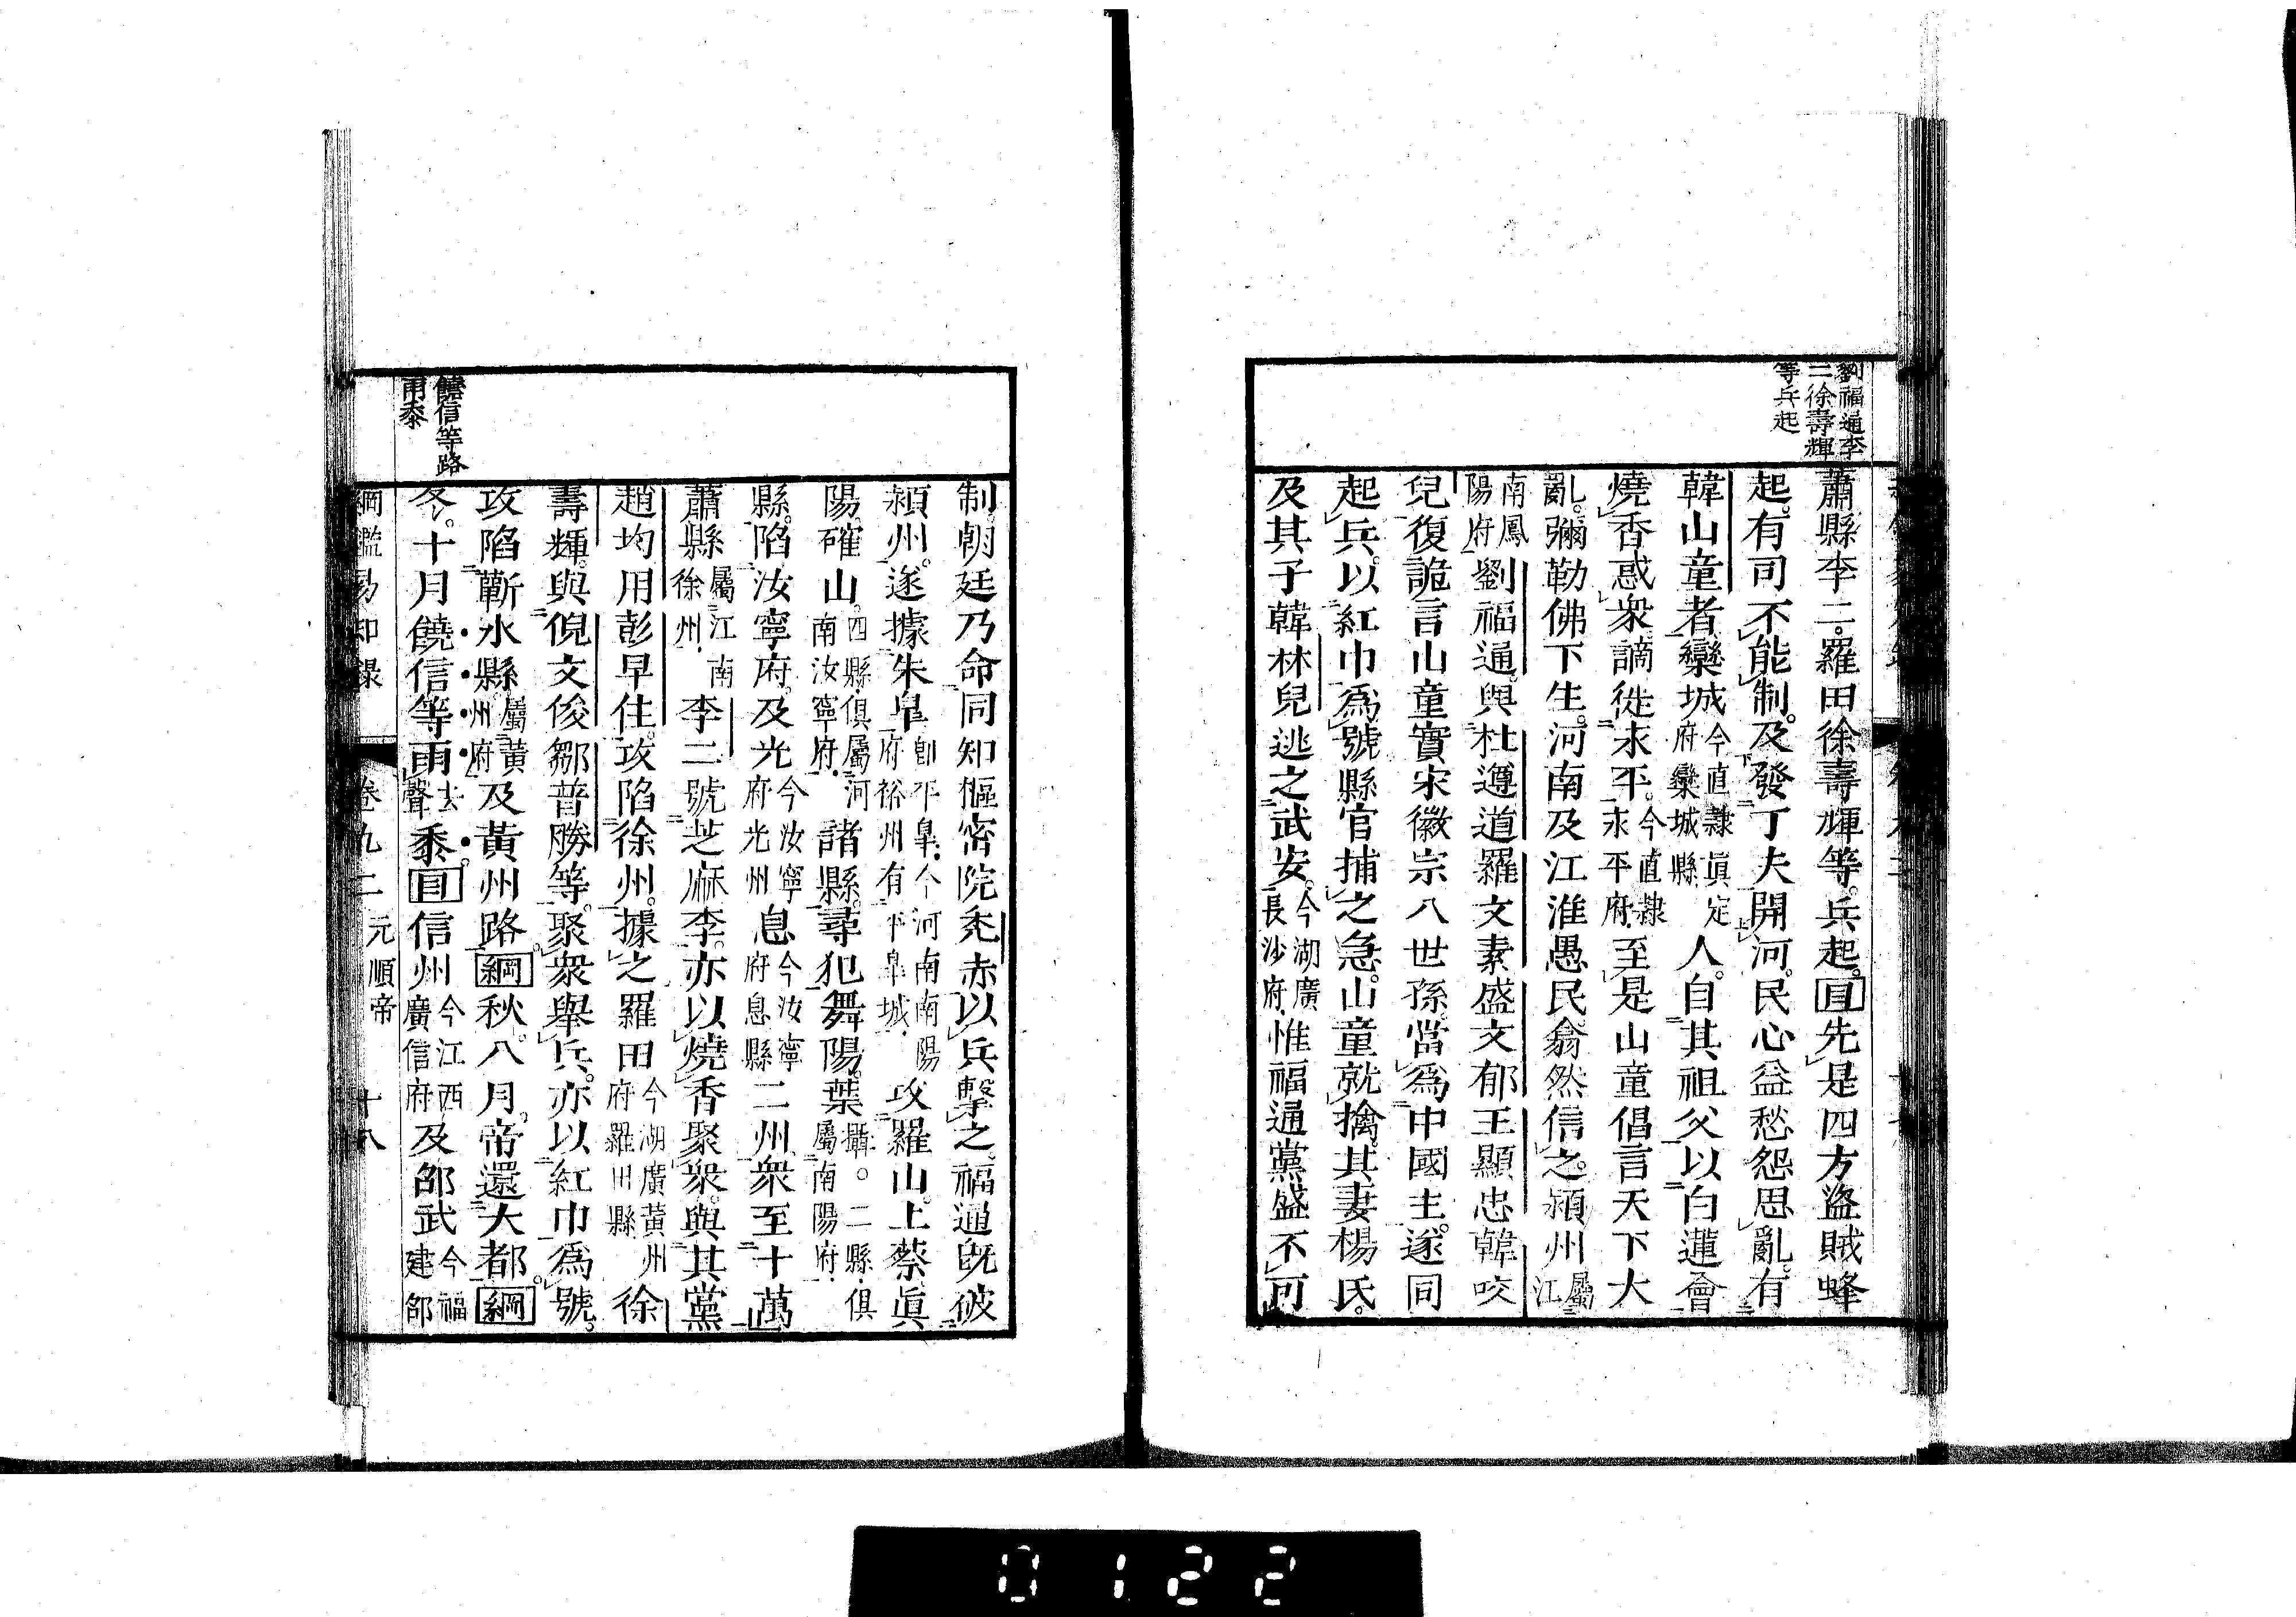 劉福通李
二徐壽輝
等兵起
蕭縣李二。羅田徐壽輝等。兵起。目先是四方盜賊蜂
起。有司不能制。及發丁夫開河。民心益愁怨思亂。有
韓山童者。欒城今直隷眞定府欒城縣人。自其祖父以白蓮會
燒香惑衆。謫徙永平。今直隷永平府至是山童倡言天下大
亂。彌勒佛下生。河南及江淮愚民。翕然信之。潁州屬江
南鳳陽府劉福通。與杜遵道羅文素盛文郁王顯忠韓咬
兒。復詭言山童實宋徽宗八世孫。當爲中國主。遂同
起兵。以紅巾爲號。縣官捕之急。山童就擒。其妻楊氏。
及其子韓林兒逃之武安。今湖廣長沙府惟福通黨盛不可
制。朝廷乃命同知樞密院禿赤以兵擊之。福通旣破
潁州。遂據朱臯。卽平臯今河南南陽府裕州有平臯城攻羅山。上蔡。眞
陽。確山。四縣俱屬河南汝寧府諸縣。尋犯舞陽。葉攝。二縣俱屬南陽府
縣。陷汝寧府。及光今汝寧府光州息今汝寧府息縣二州衆至十萬
蕭縣屬江南徐州李二號芝麻李。亦以燒香聚衆。與其黨
趙均用彭早住。攻陷徐州。據之羅田今湖廣黃州府羅田縣徐
壽輝。與倪文俊鄒普勝等。聚衆舉兵。亦以紅巾爲號。
攻陷蘄水縣。屬黃州府及黃州路。綱秋。八月。帝還大都。綱
冬。十月饒信等雨去聲黍。目信州今江西廣信府及邵武今福建邵
饒信等路
雨黍
綱鑑易知錄
卷九二
元順帝
十八
0122